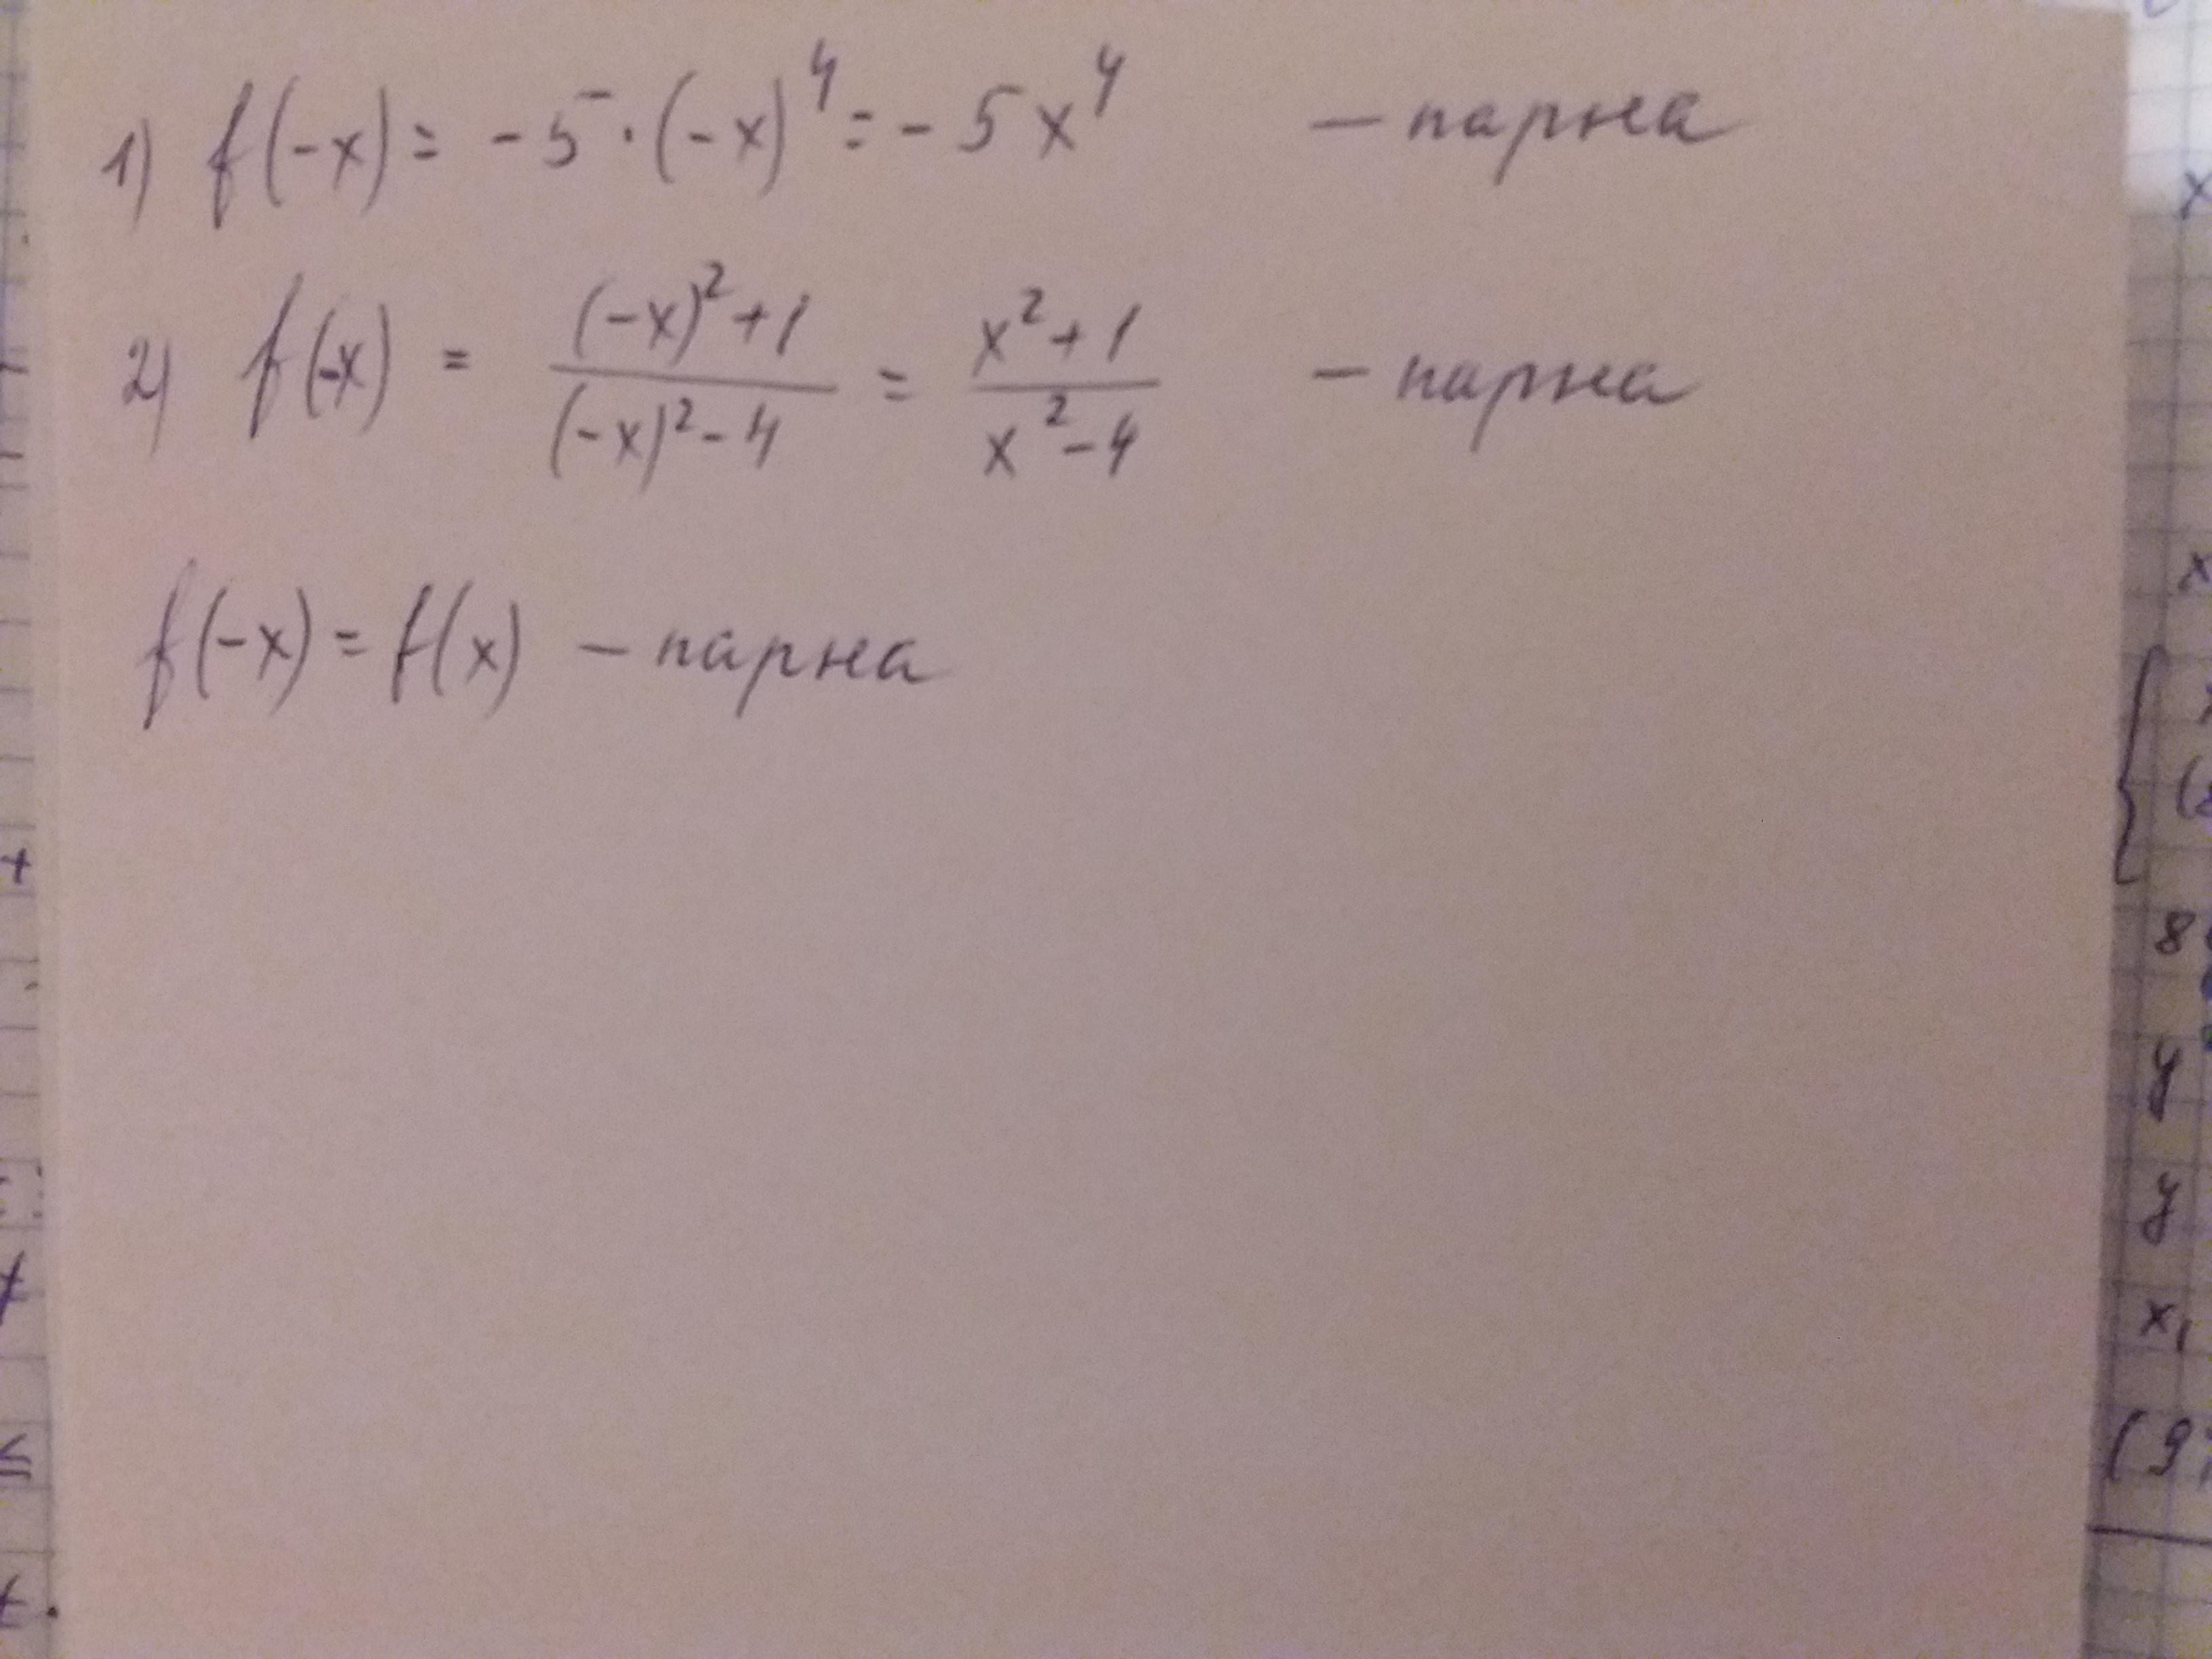 1) f(-x) = -5 · (-x)⁴ = -5x⁴ — парна
2) f(-x) = ((-x)²+1)/((-x)²-4) = (x²+1)/(x²-4) — парна
f(-x) = f(x) — парна
x
x
8
y
y
x₁
(9;
+
≤